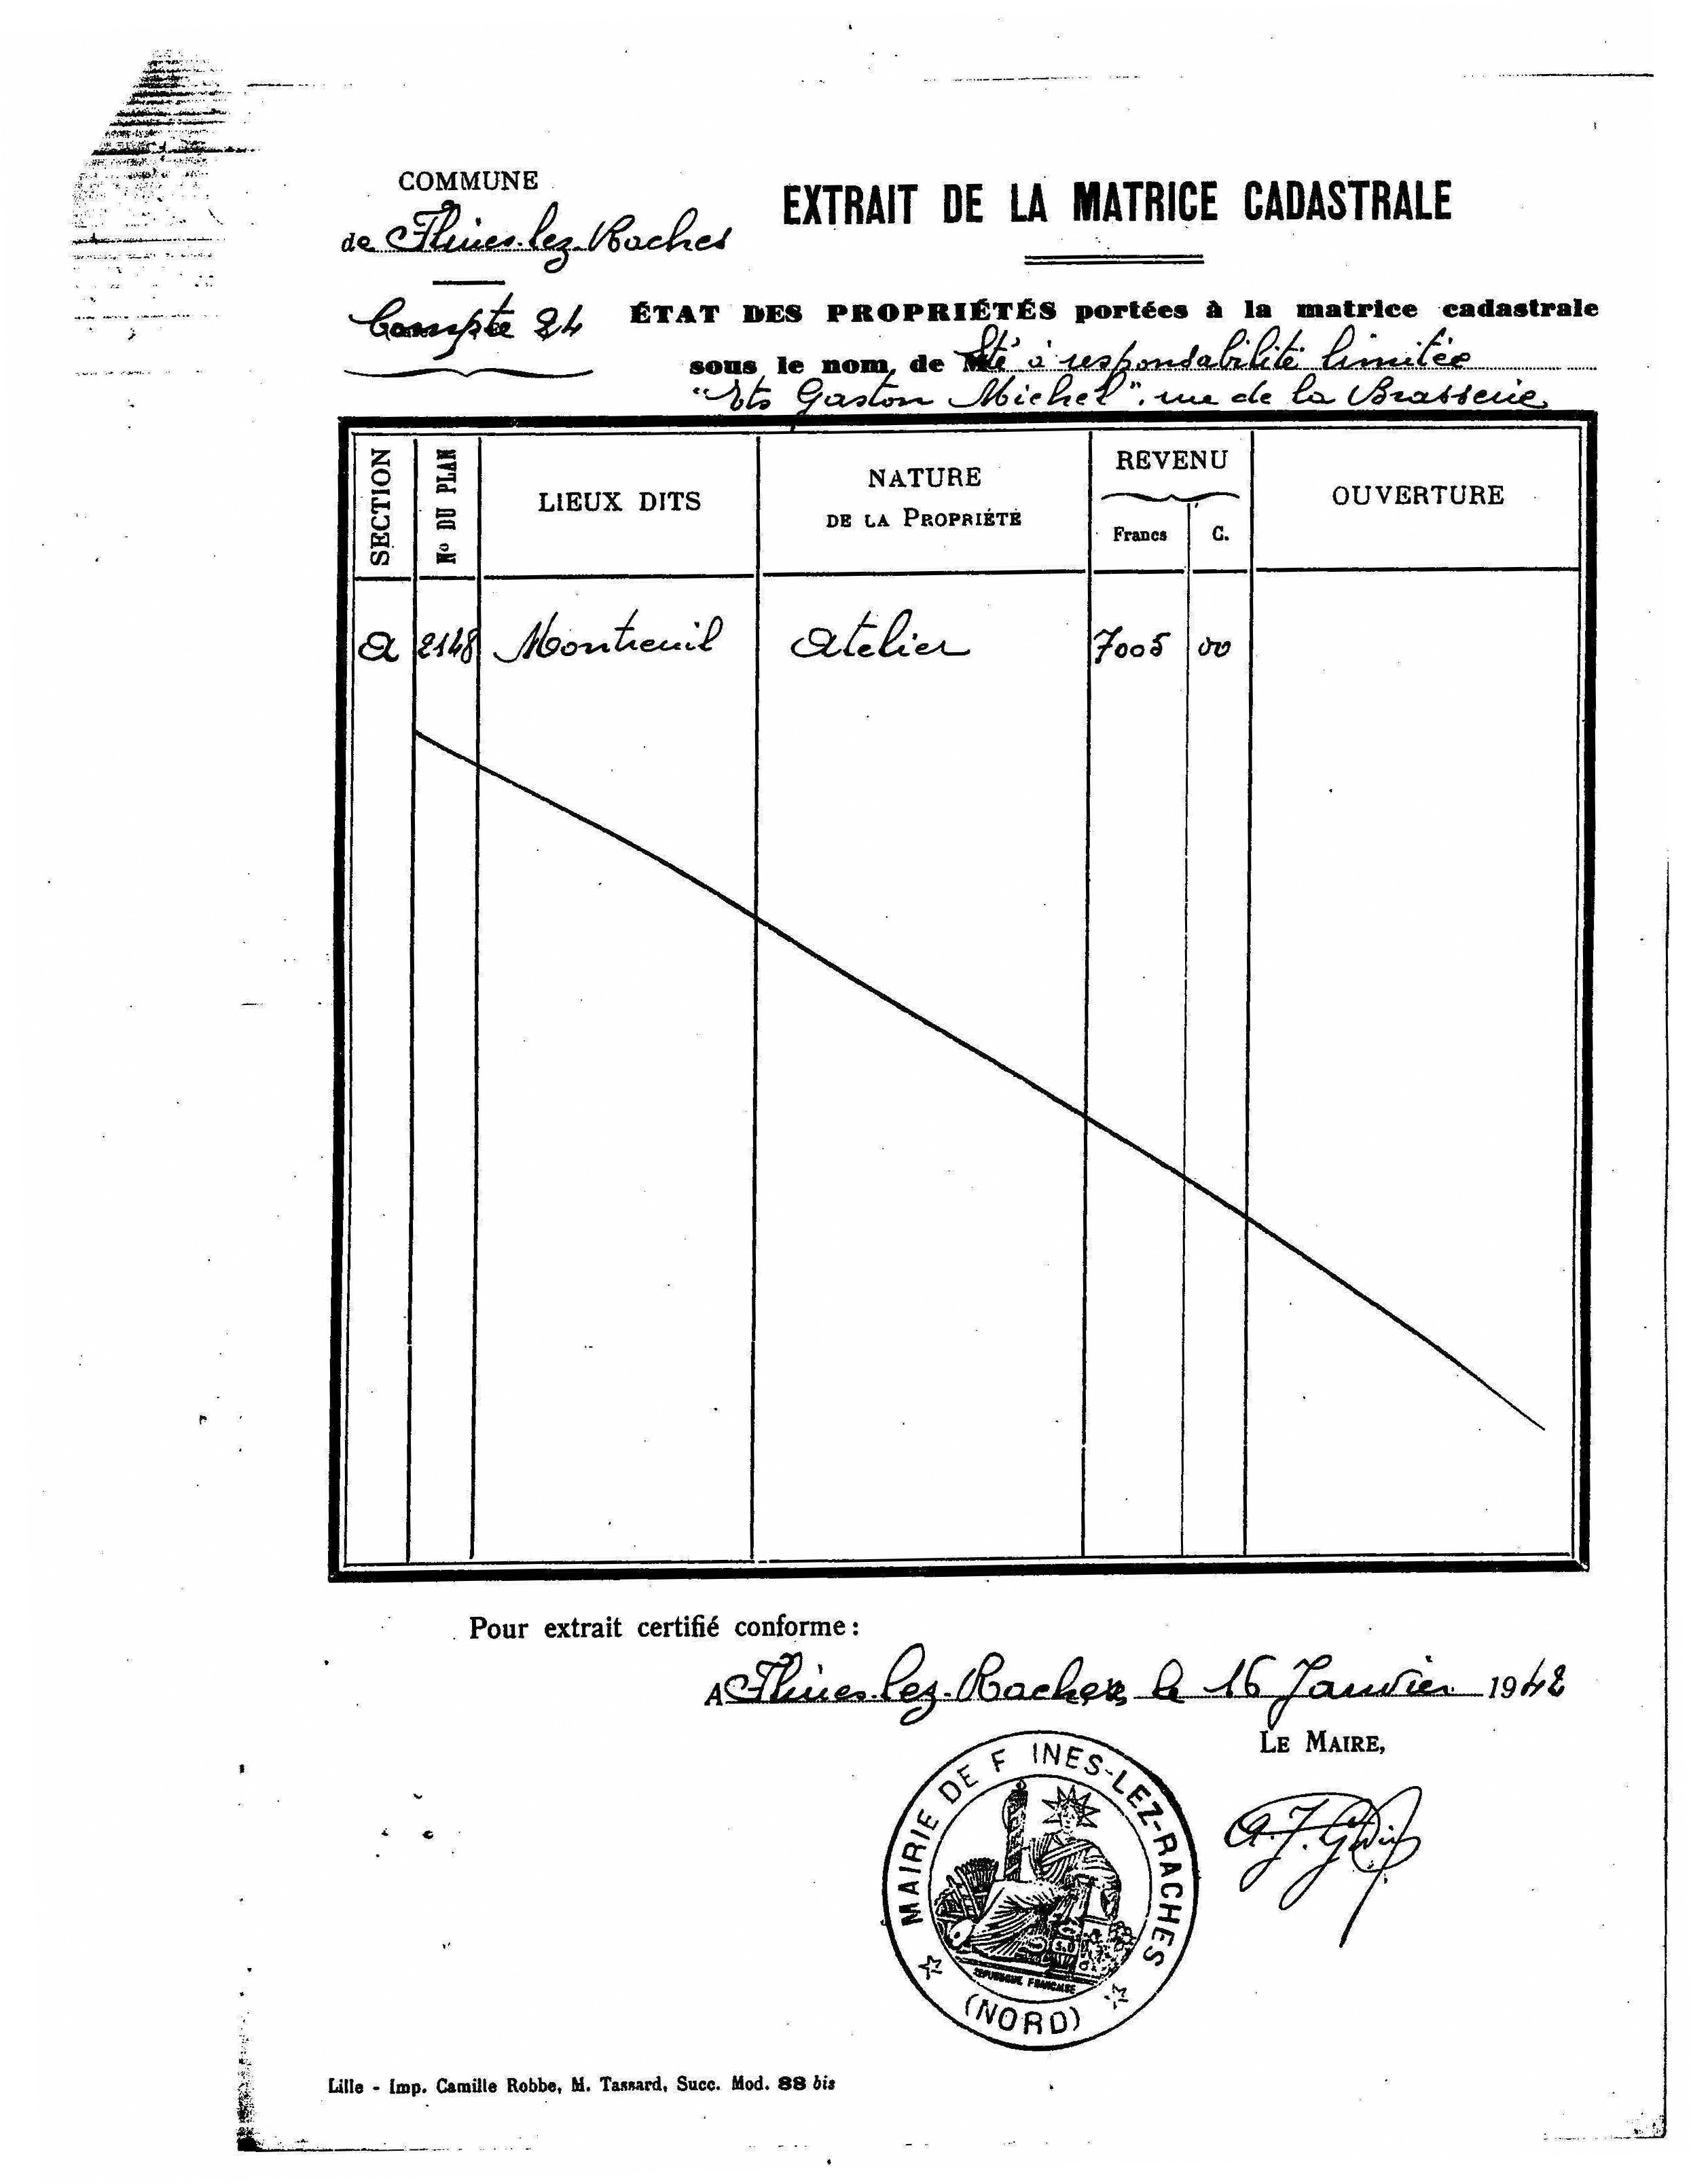 COMMUNE
de Flines-lez-Raches
EXTRAIT DE LA MATRICE CADASTRALE
Compte 24
ÉTAT DES PROPRIÉTÉS portées à la matrice cadastrale
sous le nom de Sté à responsabilité limitée
"Ets Gaston Michel". rue de la Brasserie
SECTION N° DU PLAN LIEUX DITS NATURE DE LA PROPRIÉTÉ REVENU Francs C. OUVERTURE
A 2148 Montreuil Atelier 7005 00
Pour extrait certifié conforme :
A Flines-lez-Raches, le 16 Janvier 1942
LE MAIRE,
MAIRIE DE F INES-LEZ-RACHES
RÉPUBLIQUE FRANÇAISE
(NORD)
Lille - Imp. Camille Robbe, M. Tassard, Succ. Mod. 88 bis